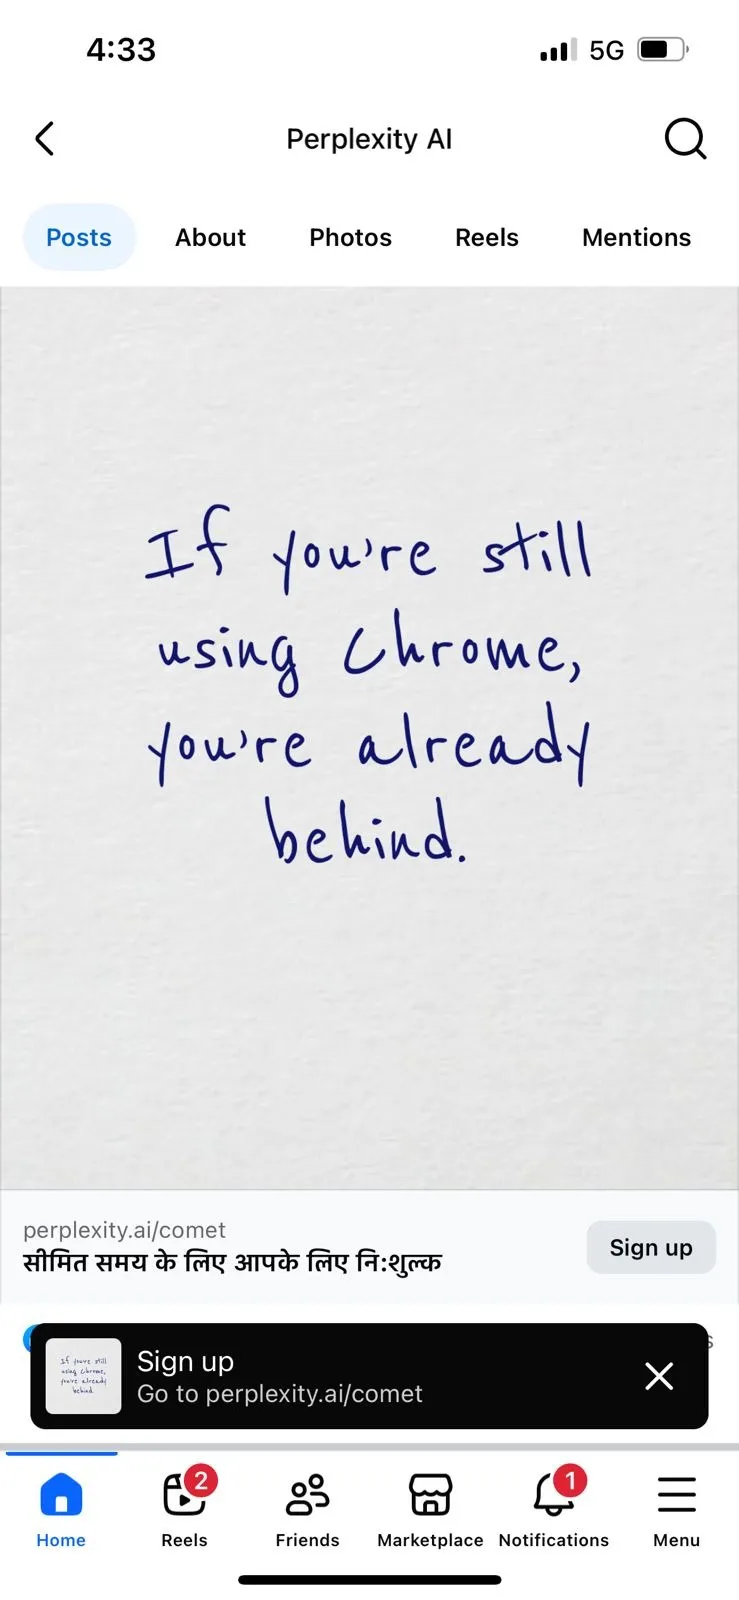 4:33
5G
Perplexity AI
Posts About Photos Reels Mentions
If you're still
using Chrome,
you're already
behind.
perplexity.ai/comet
सीमित समय के लिए आपके लिए नि:शुल्क
Sign up
If you're still
using Chrome,
you're already
behind.
Sign up
Go to perplexity.ai/comet
2
1
Home Reels Friends Marketplace Notifications Menu